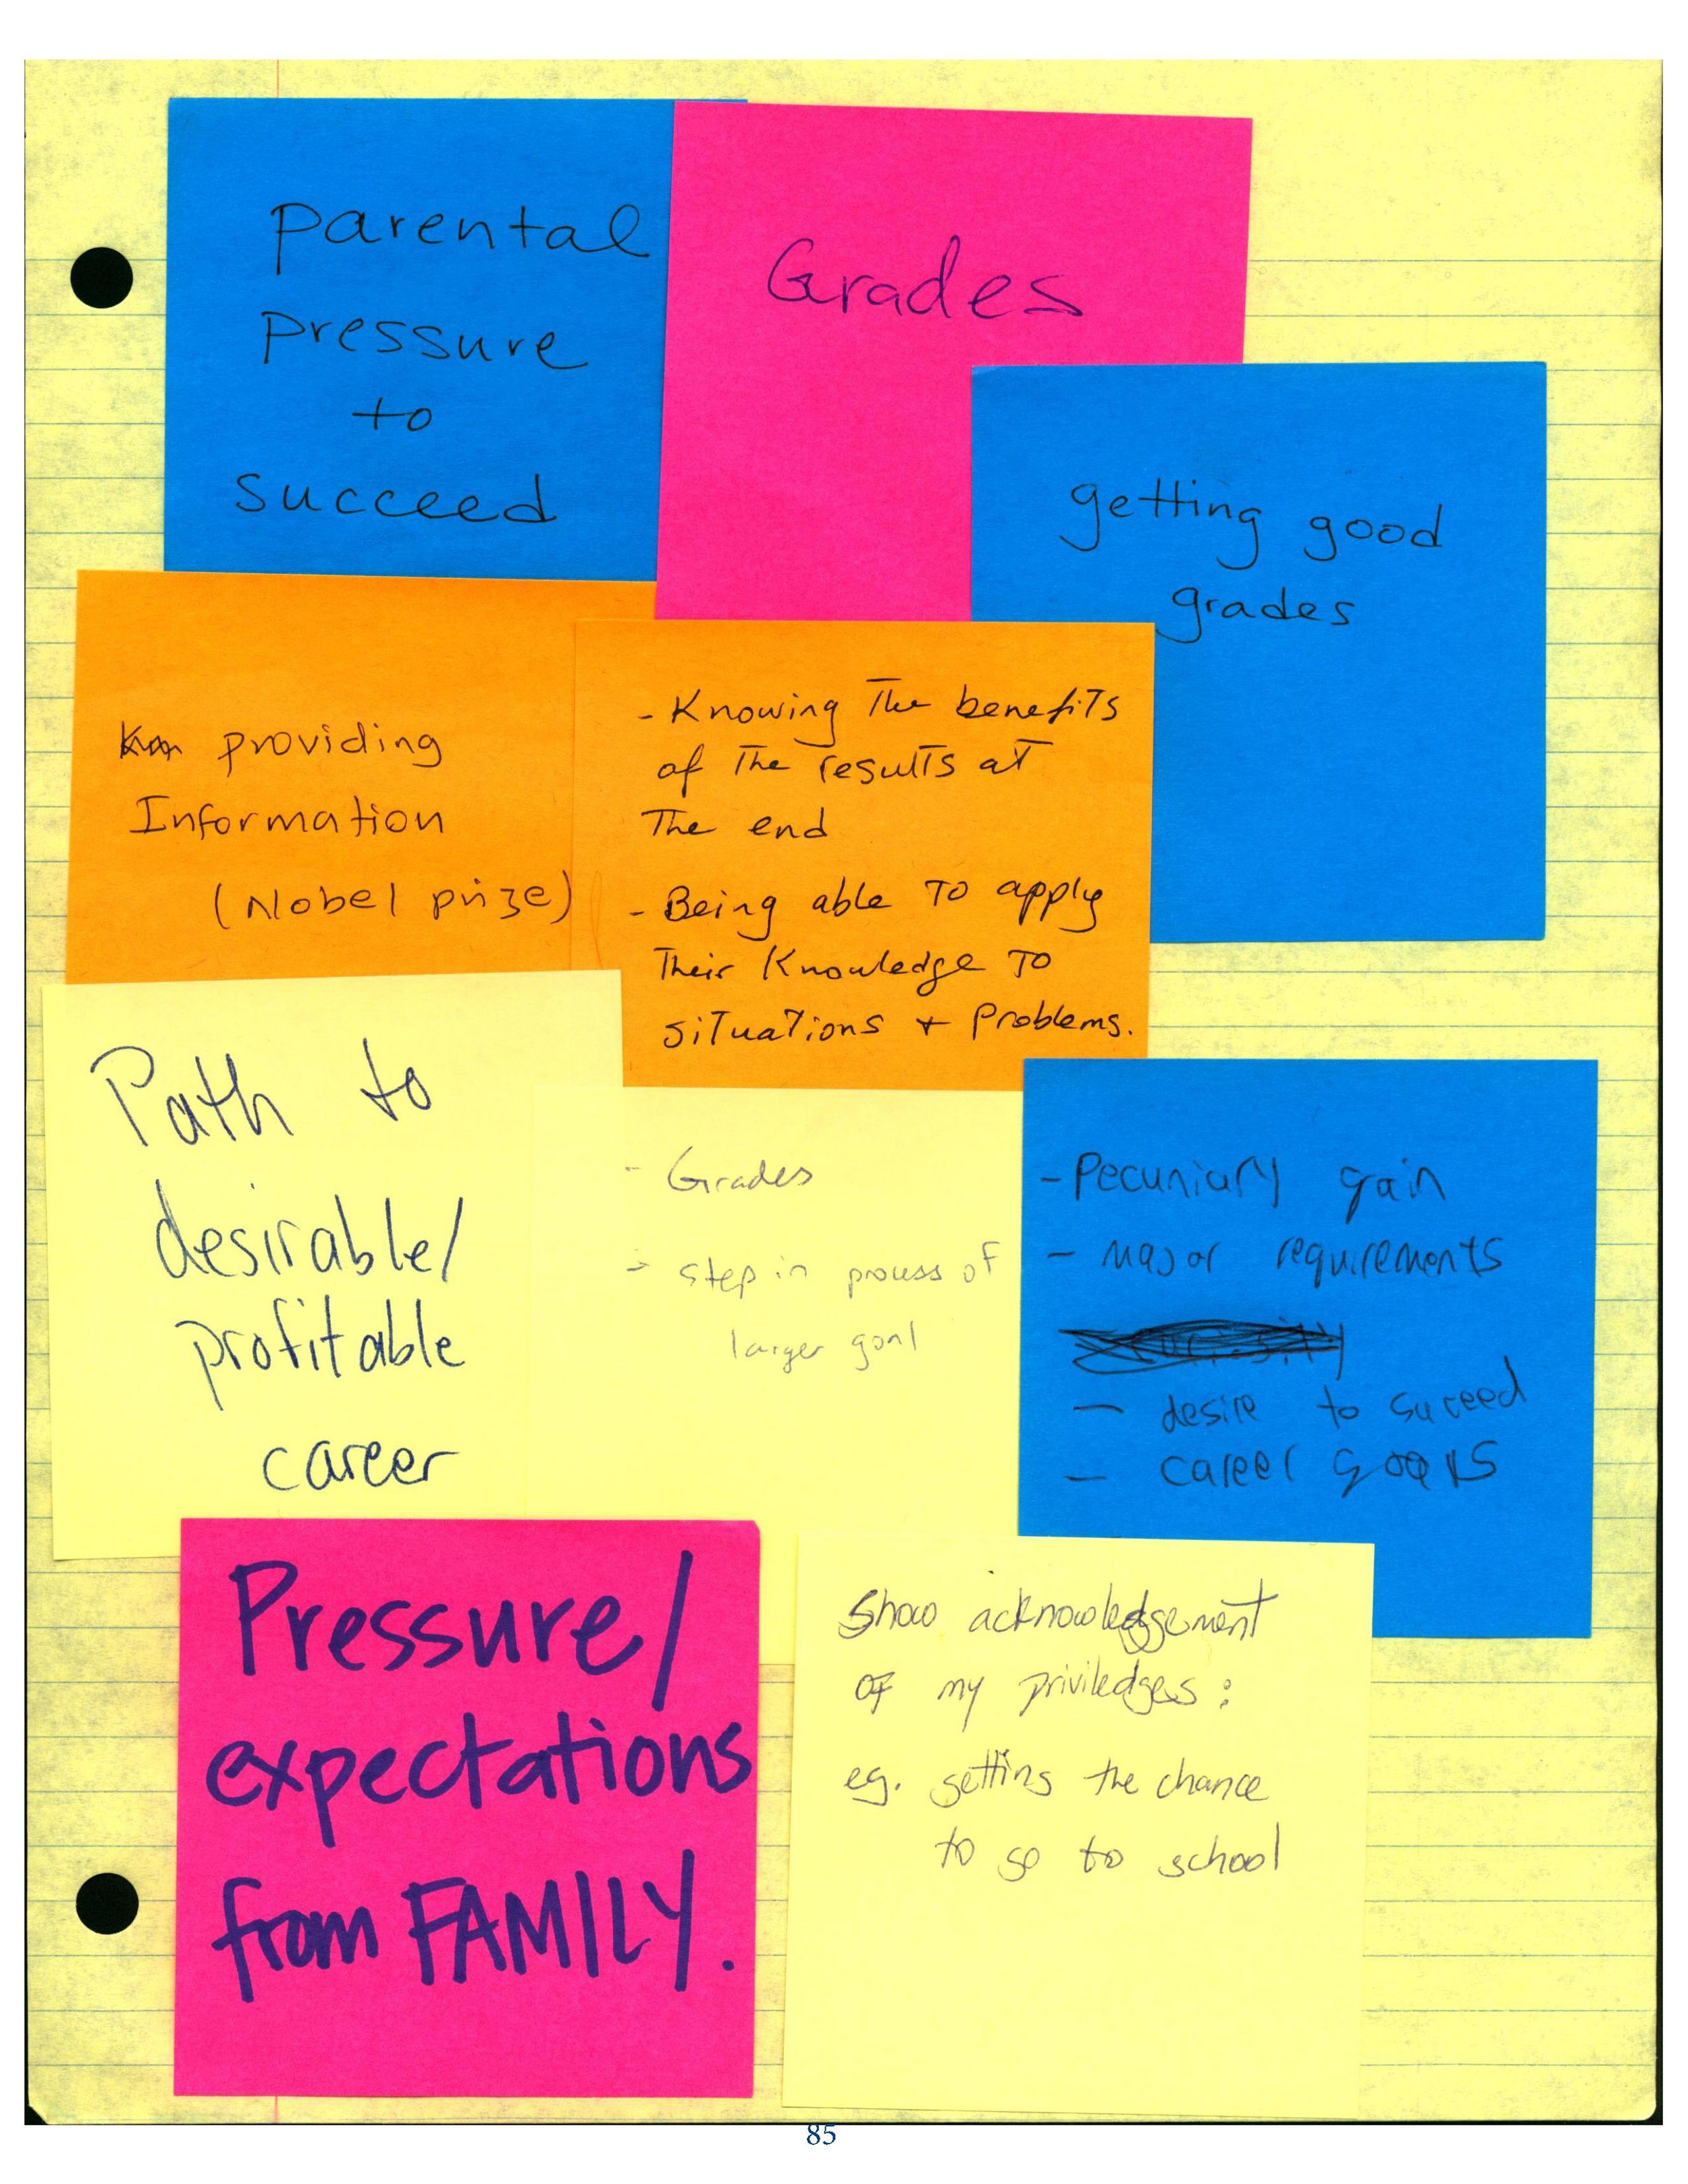 parental
pressure
to
succeed
Grades
getting good
grades
providing
Information
(Nobel prize)
- Knowing The benefits
of The results at
The end
- Being able To apply
Their Knowledge To
situations + Problems.
Path to
desirable/
profitable
career
- Grades
- step in process of
larger goal
- Pecuniary gain
- major requirements
- desire to suceed
- career goals
Pressure/
expectations
from FAMILY.
Show acknowledgement
of my priviledges:
eg. getting the chance
to go to school
85